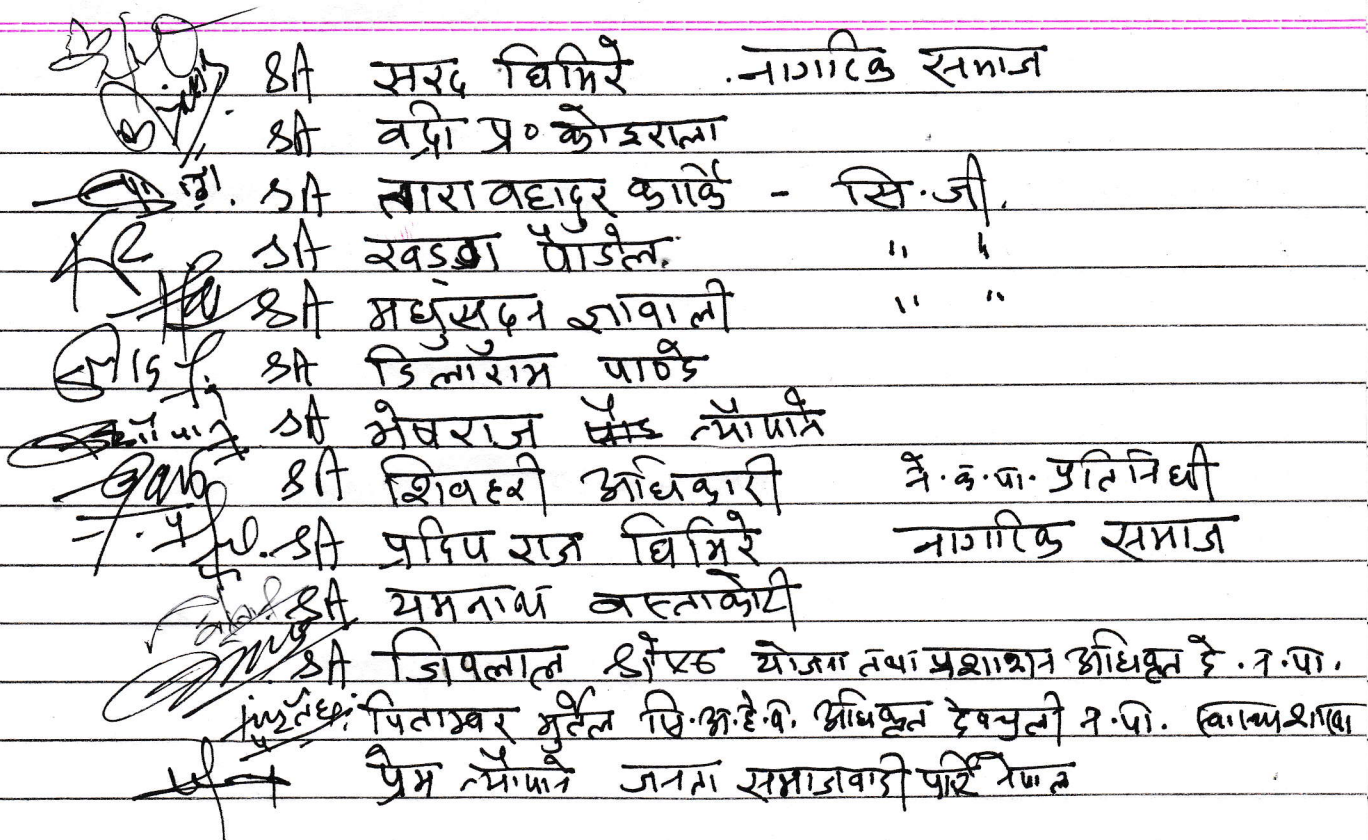 श्री सरद घिमिरे नागरिक समाज
श्री वद्री प्र० कोइराला
श्री तारा वहादुर कार्कि - सि.जी.
श्री खडग पौडेल " "
श्री मधुसुदन ज्ञावाली " "
श्री डिलाराम पाण्डे
श्री मेघराज न्यौपाने
श्री शिवहरी अधिकारी ने.क.पा. प्रतिनिधी
श्री प्रदिप राज घिमिरे नागरिक समाज
श्री यमनाथ वस्ताकोटी
श्री जिवलाल श्रेष्ठ योजना तथा प्रशाशन अधिकृत दे.न.पा.
पिताम्वर भुर्तेल सि.अ.हे.व. अधिकृत देवचुली न.पा. स्वास्थ्य शाखा
प्रेम न्यौपाने जनता समाजवादी पार्टि नेपाल